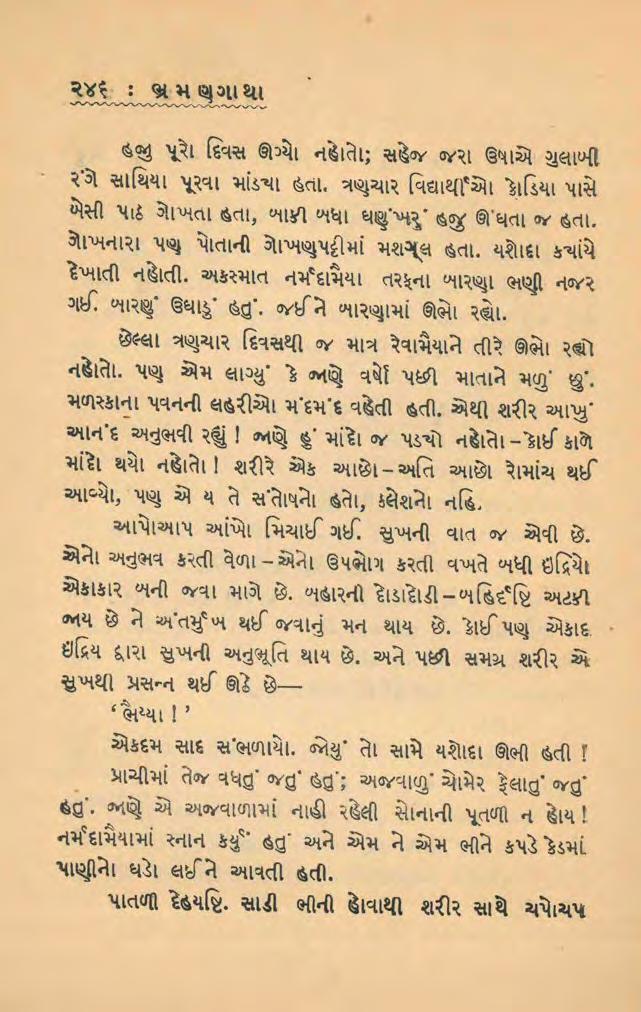 ૨૪૬ : ભ્રમણગાથા
હજી પૂરો દિવસ ઊગ્યો નહોતો; સહેજ જરા ઉષાએ ગુલાબી
રંગે સાથિયા પૂરવા માંડ્યા હતા. ત્રણચાર વિદ્યાર્થીઓ કોડિયા પાસે
બેસી પાઠ ગોખતા હતા, બાકી બધા ઘણુંખરું હજુ ઊંઘતા જ હતા.
ગોખનારા પણ પોતાની ગોખણપટ્ટીમાં મશગૂલ હતા. યશોદા ક્યાંયે
દેખાતી નહોતી. અકસ્માત નર્મદામૈયા તરફના બારણા ભણી નજર
ગઈ. બારણું ઉઘાડું હતું. જઈને બારણામાં ઊભો રહ્યો.
છેલ્લા ત્રણચાર દિવસથી જ માત્ર રેવામૈયાને તીરે ઊભો રહ્યો
નહોતો. પણ એમ લાગ્યું કે જાણે વર્ષો પછી માતાને મળું છું.
મળસ્કાના પવનની લહરીઓ મંદમંદ વહેતી હતી. એથી શરીર આખું
આનંદ અનુભવી રહ્યું ! જાણે હું માંદો જ પડ્યો નહોતો – કોઈ કાળે
માંદો થયો નહોતો ! શરીરે એક આછો – અતિ આછો રોમાંચ થઈ
આવ્યો, પણ એ ય તે સંતોષનો હતો, કલેશનો નહિ.
આપોઆપ આંખો મિચાઈ ગઈ. સુખની વાત જ એવી છે.
એનો અનુભવ કરતી વેળા – એનો ઉપભોગ કરતી વખતે બધી ઇંદ્રિયો
એકાકાર બની જવા માગે છે. બહારની દોડાદોડી – બહિર્દૃષ્ટિ અટકી
જાય છે ને અંતર્મુખ થઈ જવાનું મન થાય છે. કોઈ પણ એકાદ
ઇંદ્રિય દ્વારા સુખની અનુભૂતિ થાય છે. અને પછી સમગ્ર શરીર એ
સુખથી પ્રસન્ન થઈ ઊઠે છે—
‘ ભૈય્યા ! ’
એકદમ સાદ સંભળાયો. જોયું તો સામે યશોદા ઊભી હતી !
પ્રાચીમાં તેજ વધતું જતું હતું; અજવાળું ચોમેર ફેલાતું જતું
હતું. જાણે એ અજવાળામાં નાહી રહેલી સોનાની પૂતળી ન હોય !
નર્મદામૈયામાં સ્નાન કર્યું હતું અને એમ ને એમ ભીને કપડે કેડમાં
પાણીનો ઘડો લઈને આવતી હતી.
પાતળી દેહયષ્ટિ. સાડી ભીની હોવાથી શરીર સાથે ચપોચપ